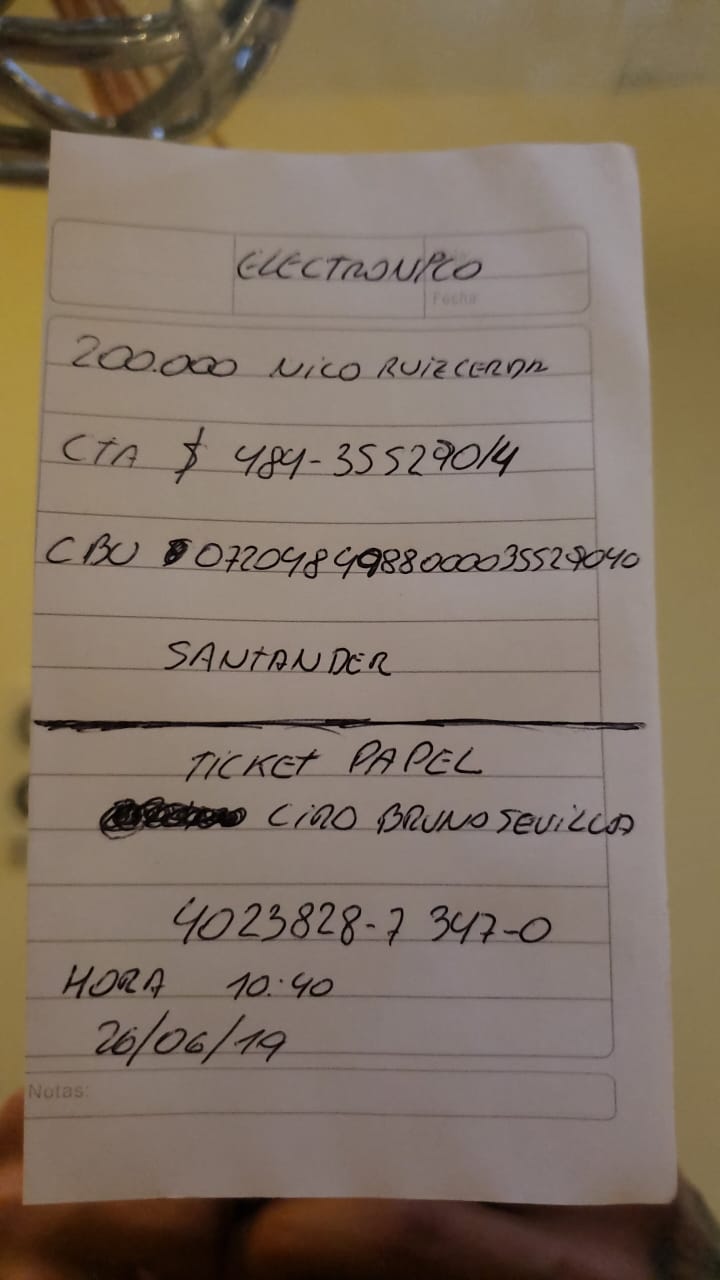 ELECTRONICO
Fecha
200.000 NICO RUIZ CERDA
CTA $ 484-355290/4
CBU 0720484988000035529040
SANTANDER
TICKET PAPEL
CIRO BRUNO SEVILLA
4023828-7 347-0
HORA 10:40
26/06/19
Notas: